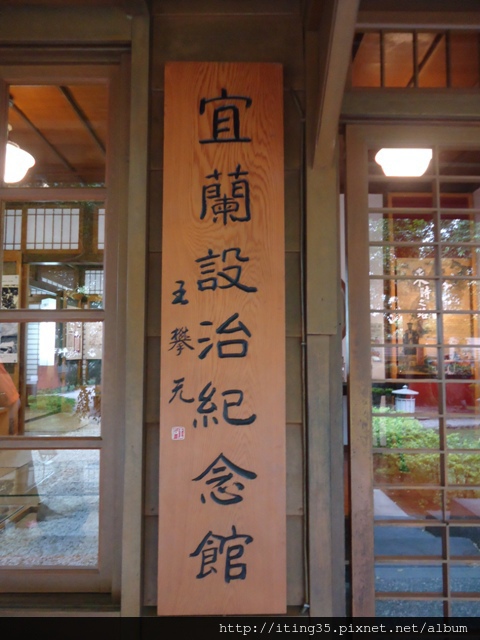 宜蘭設治紀念館
王攀元
http://iting35.pixnet.net/album